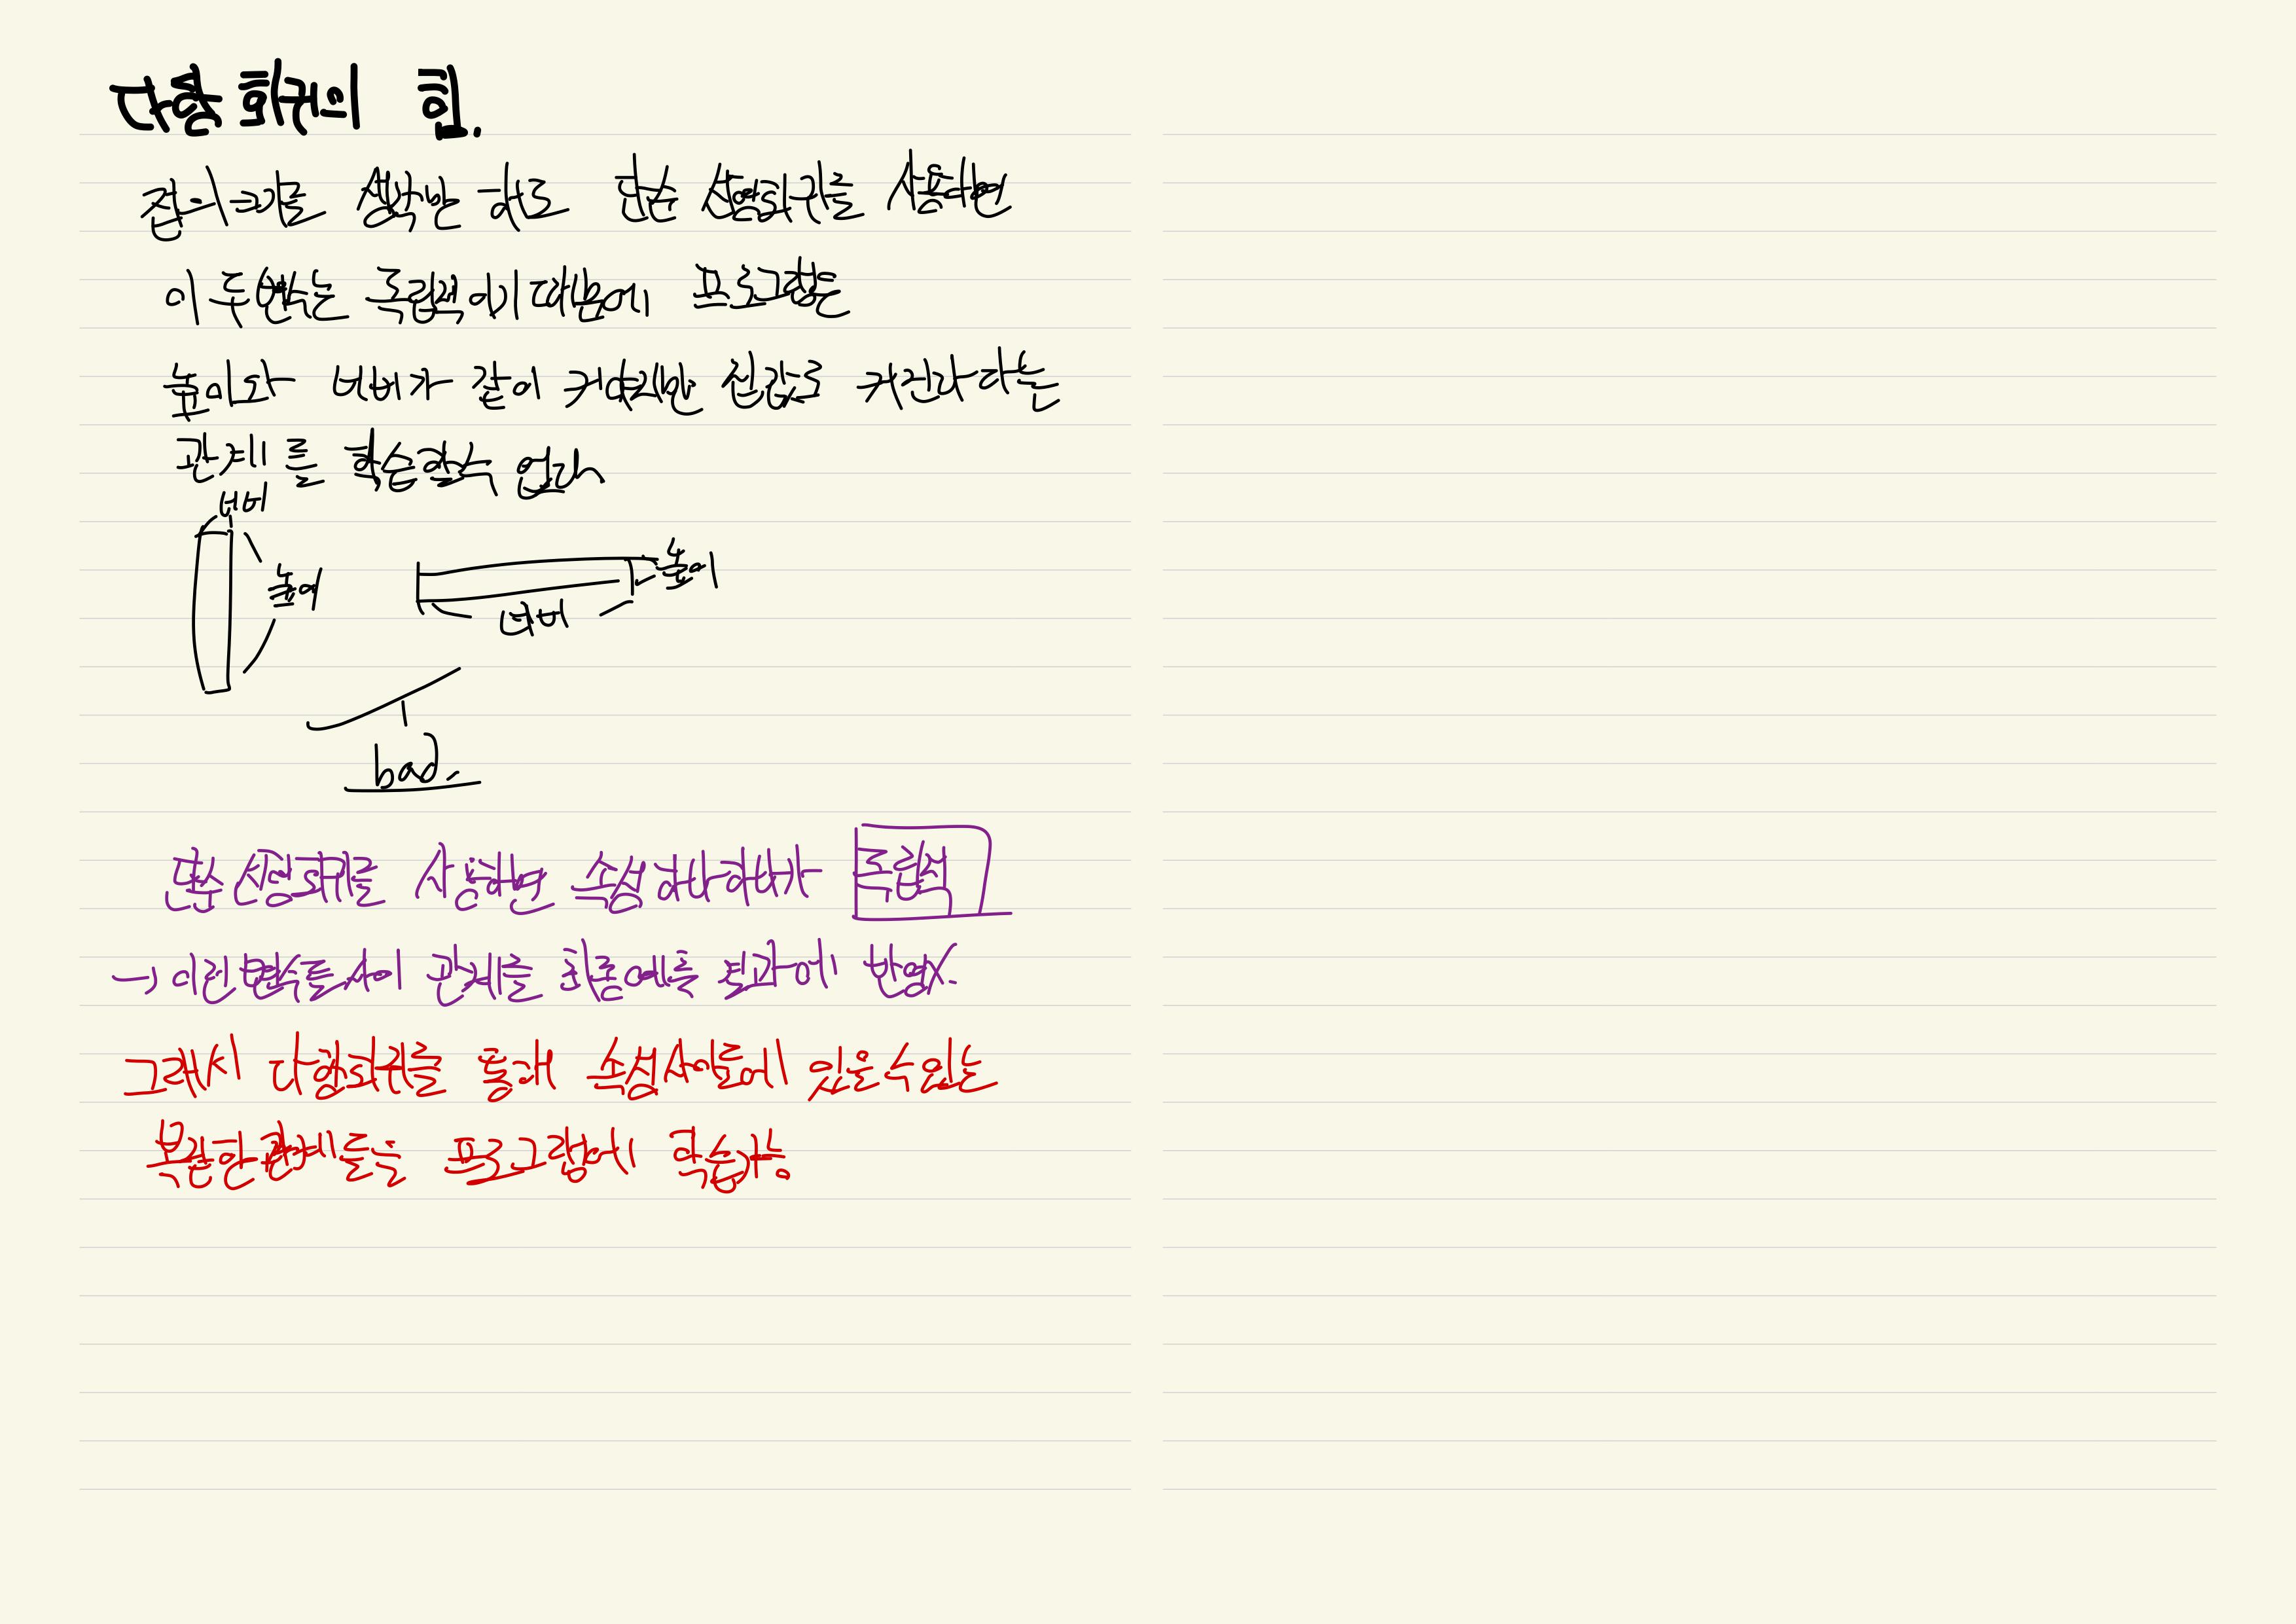 다항 회귀의 힘.
집의 크기를 생각만 해도 단순 선형회귀를 사용하면
이 두변수는 독립적이기 때문에 프로그램은
높이와 너비가 같이 커야지만 집값도 커진다 라는
관계를 학습할수 없다
너비
높이
높이
너비
bad.
단순 선형회귀를 사용하면 속성 하나하나가 독립적
→ 이런 변수들 사이 관계를 최종 예측 결과에 반영X.
그래서 다항회귀를 통해 속성 사이들에 있을 수 있는
복잡한 관계들을 프로그램에 학습가능